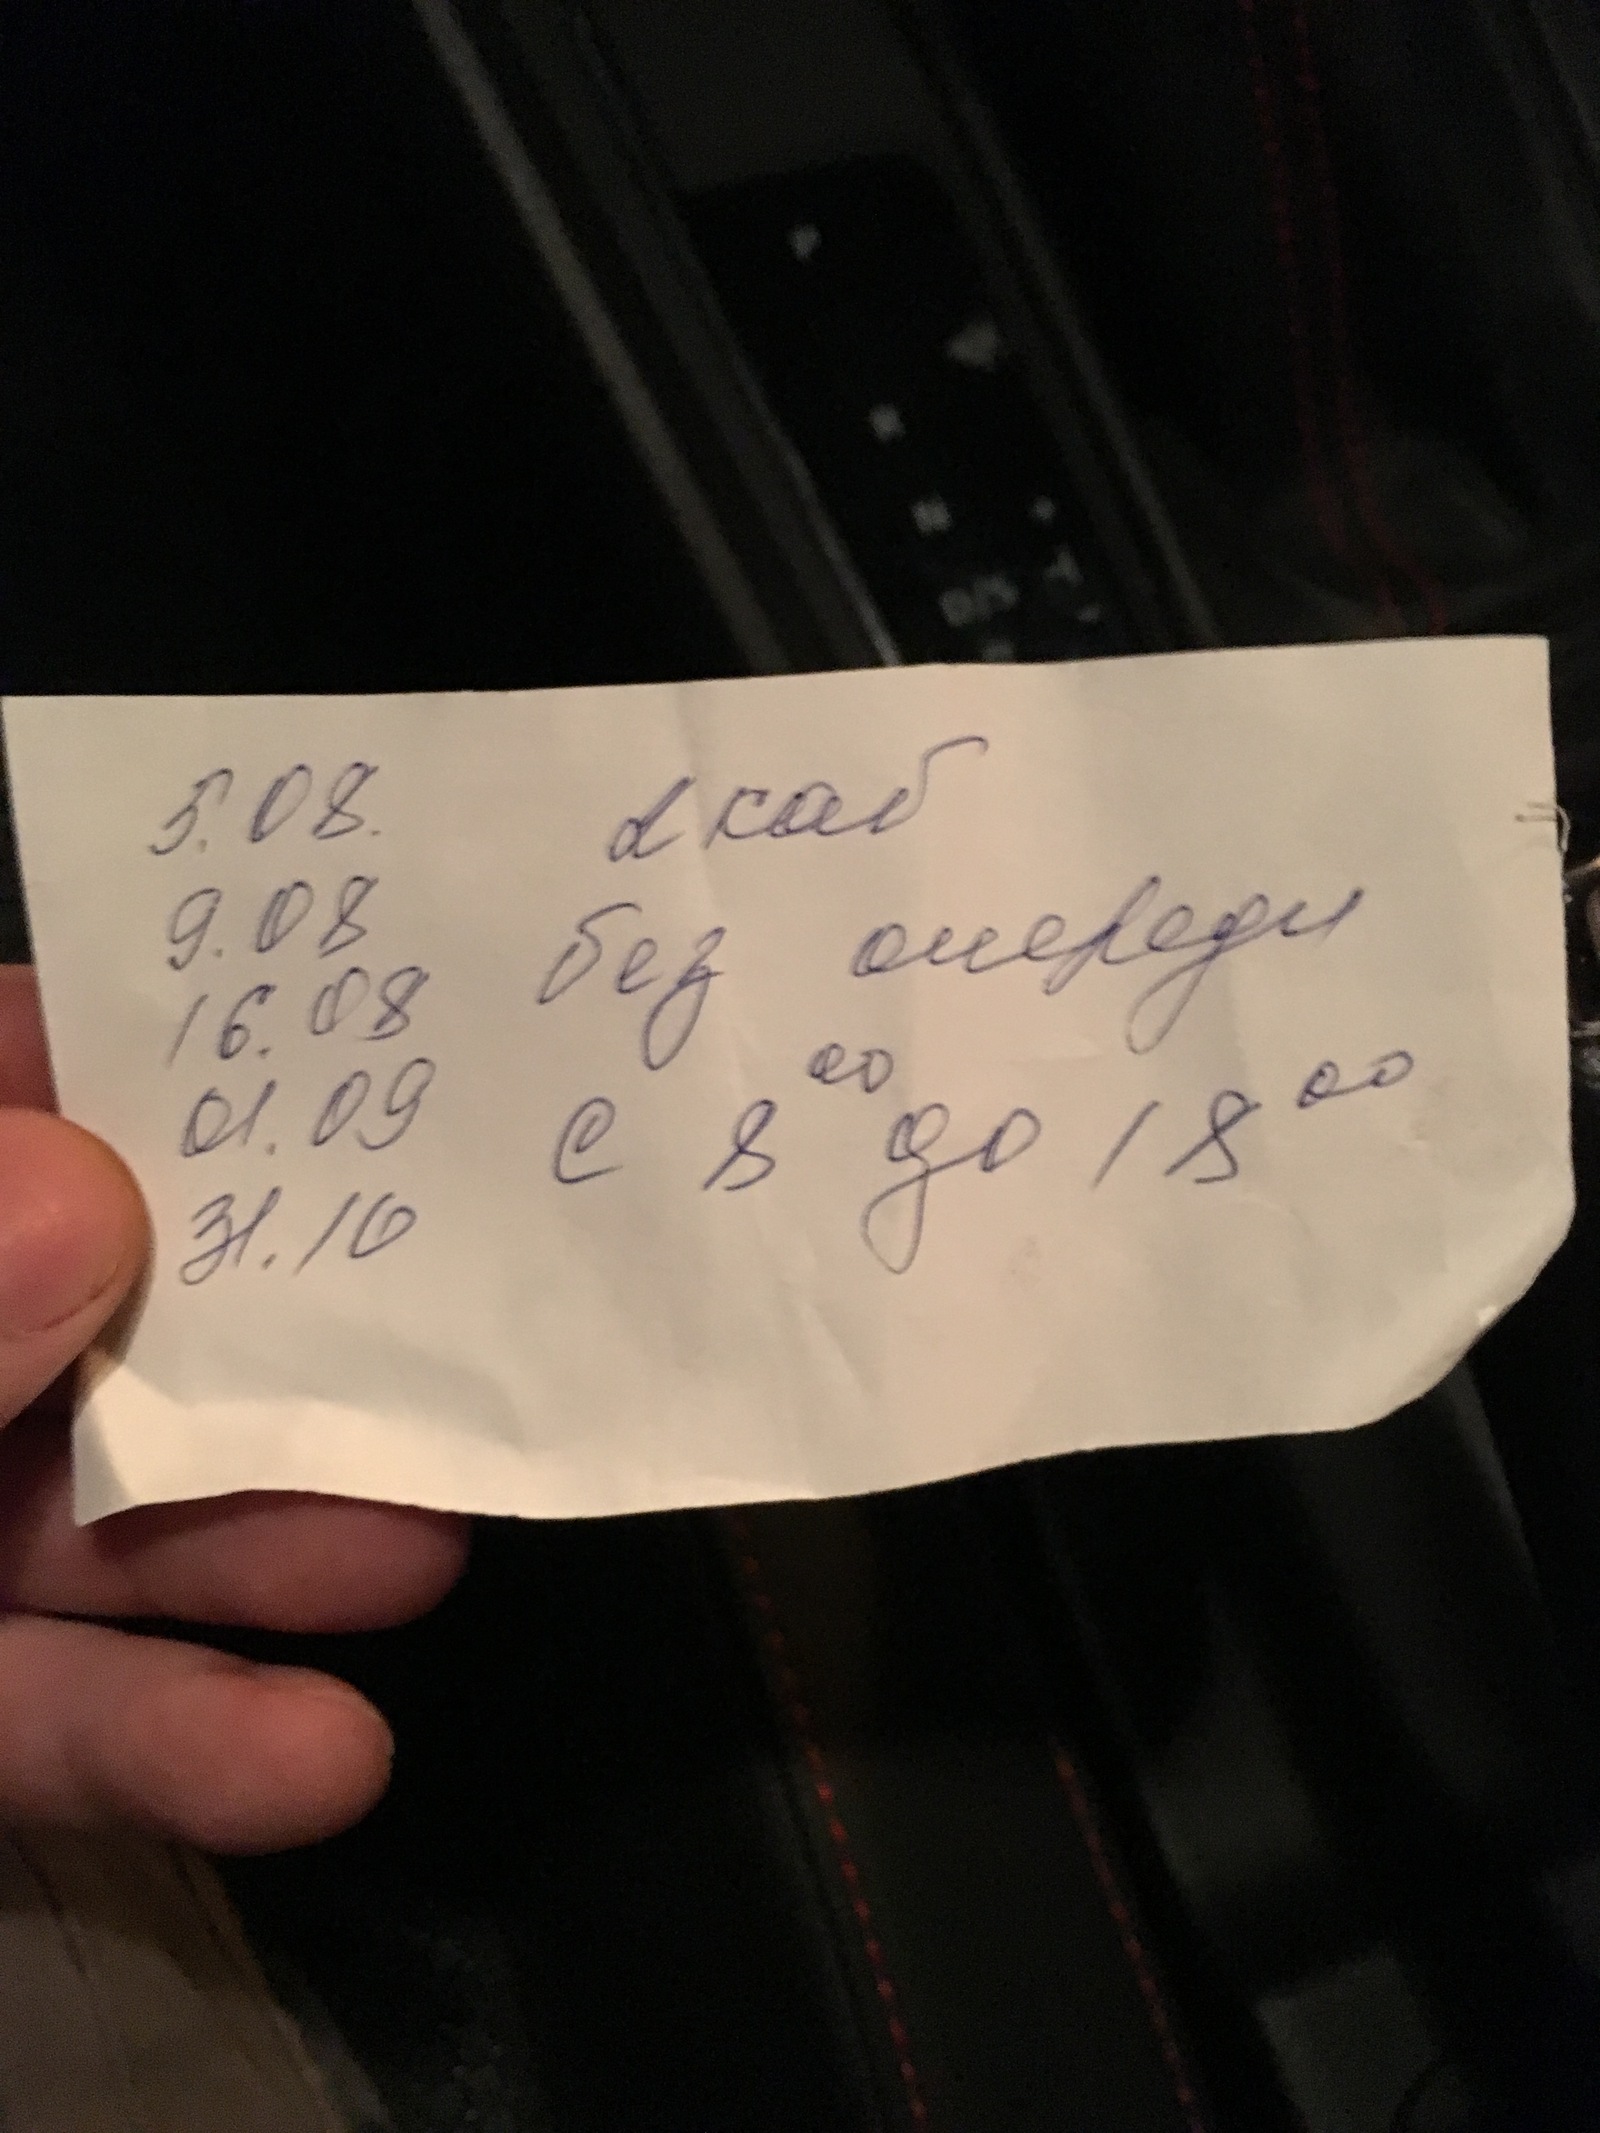 5.08. 2 каб
9.08 без очереди
16.08
01.09 с 8⁰⁰ до 18⁰⁰
31.10